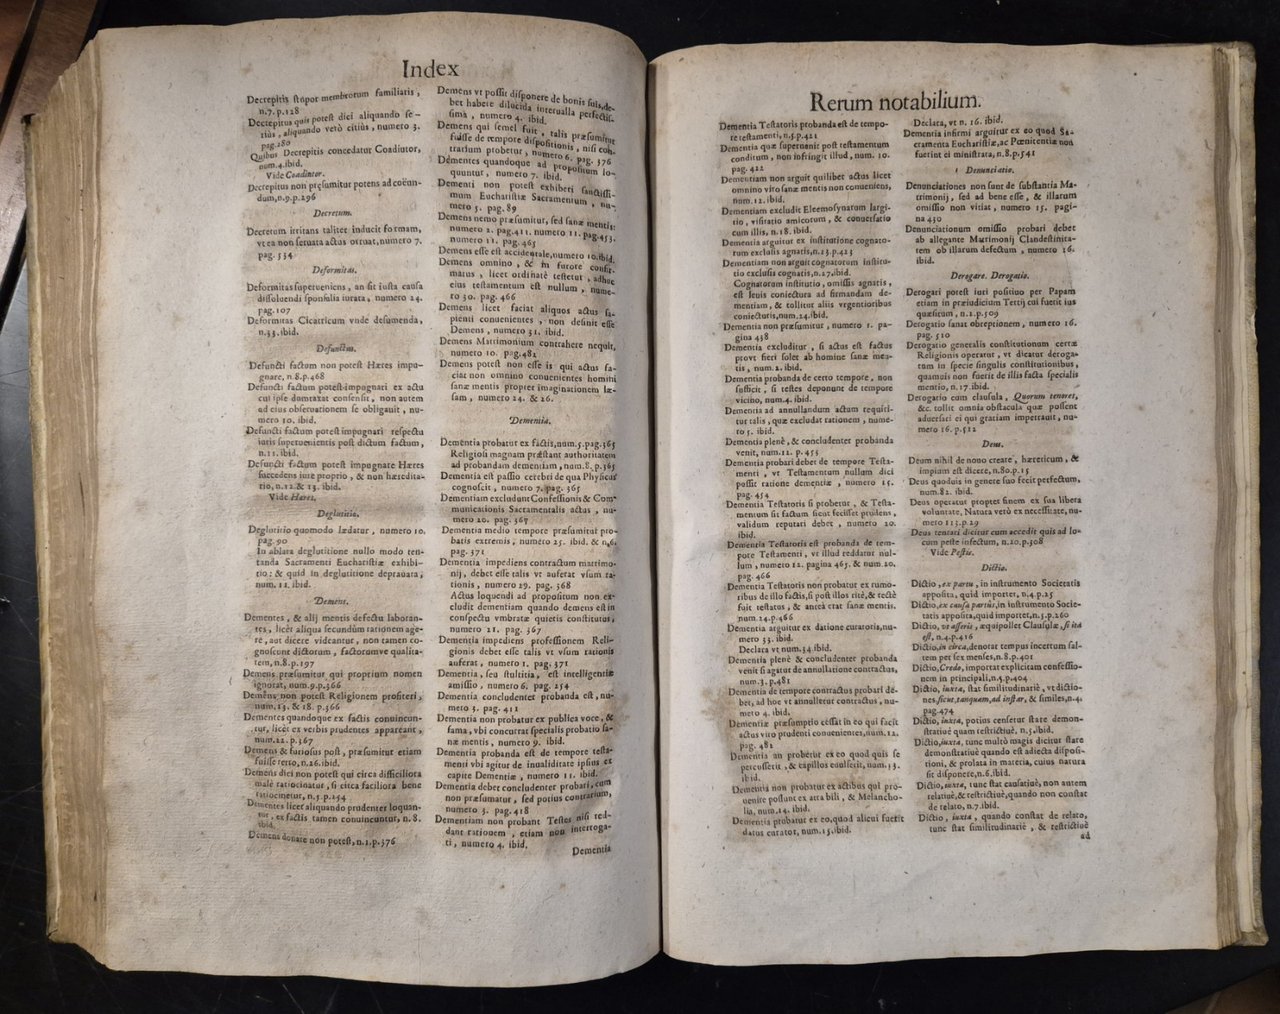 Index
Decrepitis stupor membrorum familiaris,
n.7. p.128
Decrepitus quis potest dici aliquando se-
rius, aliquando verò citius, numero 3.
pag.280
Quibus Decrepitis concedatur Coadiutor,
num.4.ibid.
Vide Coadiutor.
Decrepitus non præsumitur potens ad coëun-
dum,n.9.p.296
Decretum.
Decretum irritans taliter inducit formam,
vt ea non seruata actus corruat, numero 7.
pag. 534
Deformitas.
Deformitas superueniens, an sit iusta causa
dissoluendi sponsalia iurata, numero 24.
pag.107
Deformitas Cicatricum vnde desumenda,
n.33.ibid.
Defunctus.
Defuncti factum non potest Hæres impu-
gnare, n.8.p.468
Defuncti factum potest impugnari ex actu
cui ipse dumtaxat consensit, non autem
ad eius obseruationem se obligauit, nu-
mero 10. ibid.
Defuncti factum potest impugnari respectu
iuris superuenientis post dictum factum,
n.11.ibid.
Defuncti factum potest impugnare Hæres
succedens iure proprio, & non hæredita-
rio, n.12.& 13. ibid.
Vide Hæres.
Deglutitio.
Deglutitio quomodo lædatur, numero 10.
pag.90
In ablata deglutitione nullo modo ten-
tanda Sacramenti Eucharistiæ exhibi-
tio: & quid in deglutitione deprauata,
num.11.ibid.
Demens.
Dementes, & alij mentis defectu laboran-
tes, licèt aliqua secundùm rationem age-
re, aut dicere videantur, non tamen co-
gnoscent dictorum, factorumve qualita-
tem,n.8.p.197
Demens præsumitur qui proprium nomen
ignorat, num.9.p.366
Demens non potest Religionem profiteri,
num.13. & 18. p.366
Dementes quandoque ex factis conuincun-
tur, licèt ex verbis prudentes appareant,
num.22. p.367
Demens & furiosus post, præsumitur etiam
fuisse retro, n.26.ibid.
Demens dici non potest qui circa difficiliora
malè ratiocinatur, si circa faciliora bene
ratiocinetur, n.5.p.254
Dementes licet aliquando prudenter loquan-
tur, ex factis tamen conuincuntur, n.8.
ibid.
Demens donare non potest, n.1.p.376
Demens vt possit disponere de bonis suis,de-
bet habere dilucida interualla perfectis-
sima, numero 4. ibid.
Demens qui semel fuit, talis præsumitur
fuisse de tempore dispositionis, nisi con-
trarium probetur, numero 6. pag. 376
Dementes quandoque ad propositum lo-
quuntur, numero 7. ibid.
Dementi non potest exhiberi sanctissi-
mum Eucharistiæ Sacramentum, nu-
mero 5. pag.89
Demens nemo præsumitur, sed sanæ mentis:
numero 2. pag.411. numero 11. pag.453.
numero 11. pag.463
Demens esse est accidentale,numero 10.ibid.
Demens omnino, & in furore consti-
matus, licet ordinatè testetur, adhuc
eius testamentum est nullum, nume-
ro 30. pag. 466
Demens licet faciat aliquos actus sa-
pienti conuenientes, non desinit esse
Demens, numero 31. ibid.
Demens Matrimonium contrahere nequit,
numero 10. pag.482
Demens potest non esse is qui actus fa-
ciat non omnino conuenientes homini
sanæ mentis propter imaginationem læ-
sam, numero 24. & 26.
Dementia.
Dementia probatur ex factis,num.5.pag.363
Religiosi magnam præstant authoritatem
ad probandam dementiam, num.8. p.365
Dementia est passio cerebri de qua Physicus
cognoscit, numero 7. pag. 365
Dementiam excludunt Confessionis & Com-
municationis Sacramentalis actus, nu-
mero 20. pag. 367
Dementia medio tempore præsumitur pro-
batis extremis, numero 25. ibid. & n.6.
pag. 371
Dementia impediens contractum matrimo-
nij, debet esse talis vt auferat vsum ra-
tionis, numero 29. pag. 368
Actus loquendi ad propositum non ex-
cludit dementiam quando demens est in
conspectu vmbratæ quietis constitutus,
numero 21. pag. 367
Dementia impediens professionem Reli-
gionis debet esse talis vt vsum rationis
auferat, numero 1. pag. 371
Dementia, seu stultitia, est intelligentiæ
amissio, numero 6. pag. 254
Dementia concludenter probanda est, nu-
mero 3. pag. 412
Dementia non probatur ex publica voce, &
fama, vbi concurrat specialis probatio sa-
næ mentis, numero 9. ibid.
Dementia probanda est de tempore testa-
menti vbi agitur de inualiditate ipsius ex
capite Dementiæ, numero 11. ibid.
Dementia debet concludenter probari, cum
non præsumatur, sed potius contrarium,
numero 3. pag.418
Dementiam non probant Testes nisi red-
dant rationem, etiam non interroga-
ti, numero 4. ibid.
Dementia
Rerum notabilium.
Dementia Testatoris probanda est de tempo-
re testamenti, n.5.p.421
Dementia quæ superuenit post testamentum
conditum, non infringit illud, num. 10.
pag. 422
Dementiam non arguit quilibet actus licet
omnino viro sanæ mentis non conueniens,
num.12.ibid.
Dementiam excludit Eleemosynarum largi-
tio, visitatio amicorum, & conuersatio
cum illis, n.18. ibid.
Dementia arguitur ex institutione cognato-
rum exclusis agnatis,n.23.p.423
Dementiam non arguit cognatorum institu-
tio exclusis cognatis,n.27.ibid.
Cognatorum institutio, omissis agnatis,
est leuis coniectura ad firmandam de-
mentiam, & tollitur aliis vrgentioribus
coniecturis,num.24.ibid.
Dementia non præsumitur, numero 1. pa-
gina 438
Dementia excluditur, si actus est factus
prout fieri solet ab homine sanæ men-
tis, num.2. ibid.
Dementia probanda de certo tempore, non
sufficit, si testes deponunt de tempore
vicino, num.4. ibid.
Dementia ad annullandum actum requiri-
tur talis, quæ excludat rationem, nume-
ro 5. ibid.
Dementia plenè, & concludenter probanda
venit, num.12. p. 453
Dementia probari debet de tempore Testa-
menti, vt Testamentum nullum dici
possit ratione dementiæ, numero 15.
pag. 454
Dementia Testatoris si probetur, & Testa-
mentum sit factum sicut fecisset prudens,
validum reputari debet, numero 20.
ibid.
Dementia Testatoris est probanda de tem-
pore Testamenti, vt illud reddatur nul-
lum, numero 12. pagina 463. & num.20.
pag. 466
Dementia Testatoris non probatur ex rumo-
ribus de illo factis,si post illos ritè,& rectè
fuit testatus, & anteà erat sanæ mentis.
num.24.p.466
Dementia arguitur ex datione curatoris,nu-
mero 33. ibid.
Declara vt num.34.ibid.
Dementia plenè & concludenter probanda
venit si agitur de annullatione contractus,
num.3. p.481
Dementia de tempore contractus probari de-
bet, ad hoc vt annulletur contractus, nu-
mero 4. ibid.
Dementiæ præsumptio cessat in eo qui facit
actus viro prudenti conuenientes, num.12.
pag. 482
Dementia an probetur ex eo quod quis se
percusserit, & capillos euulserit, num.13.
ibid.
Dementia non probatur ex actibus qui pro-
uenire possunt ex atra bili, & Melancho-
lia, num.14. ibid.
Dementia probatur ex eo,quod alicui fuerit
datus curator, num.15.ibid.
Declara, vt n. 16. ibid.
Dementia infirmi arguitur ex eo quod Sa-
cramenta Eucharistiæ, ac Pœnitentiæ non
fuerint ei ministrata, n.8.p.541
Denunciatio.
Denunciationes non sunt de substantia Ma-
trimonij, sed ad bene esse, & illarum
omissio non vitiat, numero 15. pagi-
na 430
Denunciationum omissio probari debet
ab allegante Matrimonij Clandestinita-
tem ob illarum defectum, numero 16.
ibid.
Derogare. Derogatio.
Derogari potest iuri positiuo per Papam
etiam in præiudicium Tertij cui fuerit ius
quæsitum, n.1.p.509
Derogatio sanat obreptionem, numero 16.
pag. 510
Derogatio generalis constitutionum certæ
Religionis operatur, vt dicatur deroga-
tum in specie singulis constitutionibus,
quamuis non fuerit de illis facta specialis
mentio, n. 17. ibid.
Derogatio cum clausula, Quorum tenores,
&c. tollit omnia obstacula quæ possent
aduersari ei qui gratiam impetrauit, nu-
mero 16. p.512
Deus.
Deum nihil de nouo creare, hæreticum, &
impium est dicere, n.80.p.15
Deus quoduis in genere suo fecit perfectum,
num.82. ibid.
Deus operatur propter finem ex sua libera
voluntate, Natura verò ex necessitate, nu-
mero 113.p.29
Deus tentari dicitur cum accedit quis ad lo-
cum peste infectum, n.20.p.308
Vide Pestis.
Dictio.
Dictio, ex partu, in instrumento Societatis
apposita, quid importet, n.4.p.25
Dictio,ex causa partus,in instrumento Socie-
tatis apposita,quid importet,n.5.p.260
Dictio, vt asseris, æquipollet Clausulæ, si ita
est, n.4.p.416
Dictio,in circa,denotat tempus incertum sal-
tem per sex menses,n.8.p.401
Dictio,Credo, importat explicitam confessio-
nem in principali,n.4.p.404
Dictio, iuxta, stat similitudinariè, vt dictio-
nes,sicut,tanquam,ad instar, & similes,n.4.
pag.474
Dictio, iuxta, potius censetur stare demon-
stratiuè quam restrictiuè, n.5.ibid.
Dictio,iuxta, tunc multò magis dicitur stare
demonstratiuè quando est adiecta disposi-
tioni, & prolata in materia, cuius natura
sit disponere,n.6.ibid.
Dictio,iuxta, tunc stat causatiuè, non autem
relatiuè,& restrictiuè,quando non constat
de relato, n.7.ibid.
Dictio, iuxta, quando constat de relato,
tunc stat similitudinariè, & restrictiuè
ad